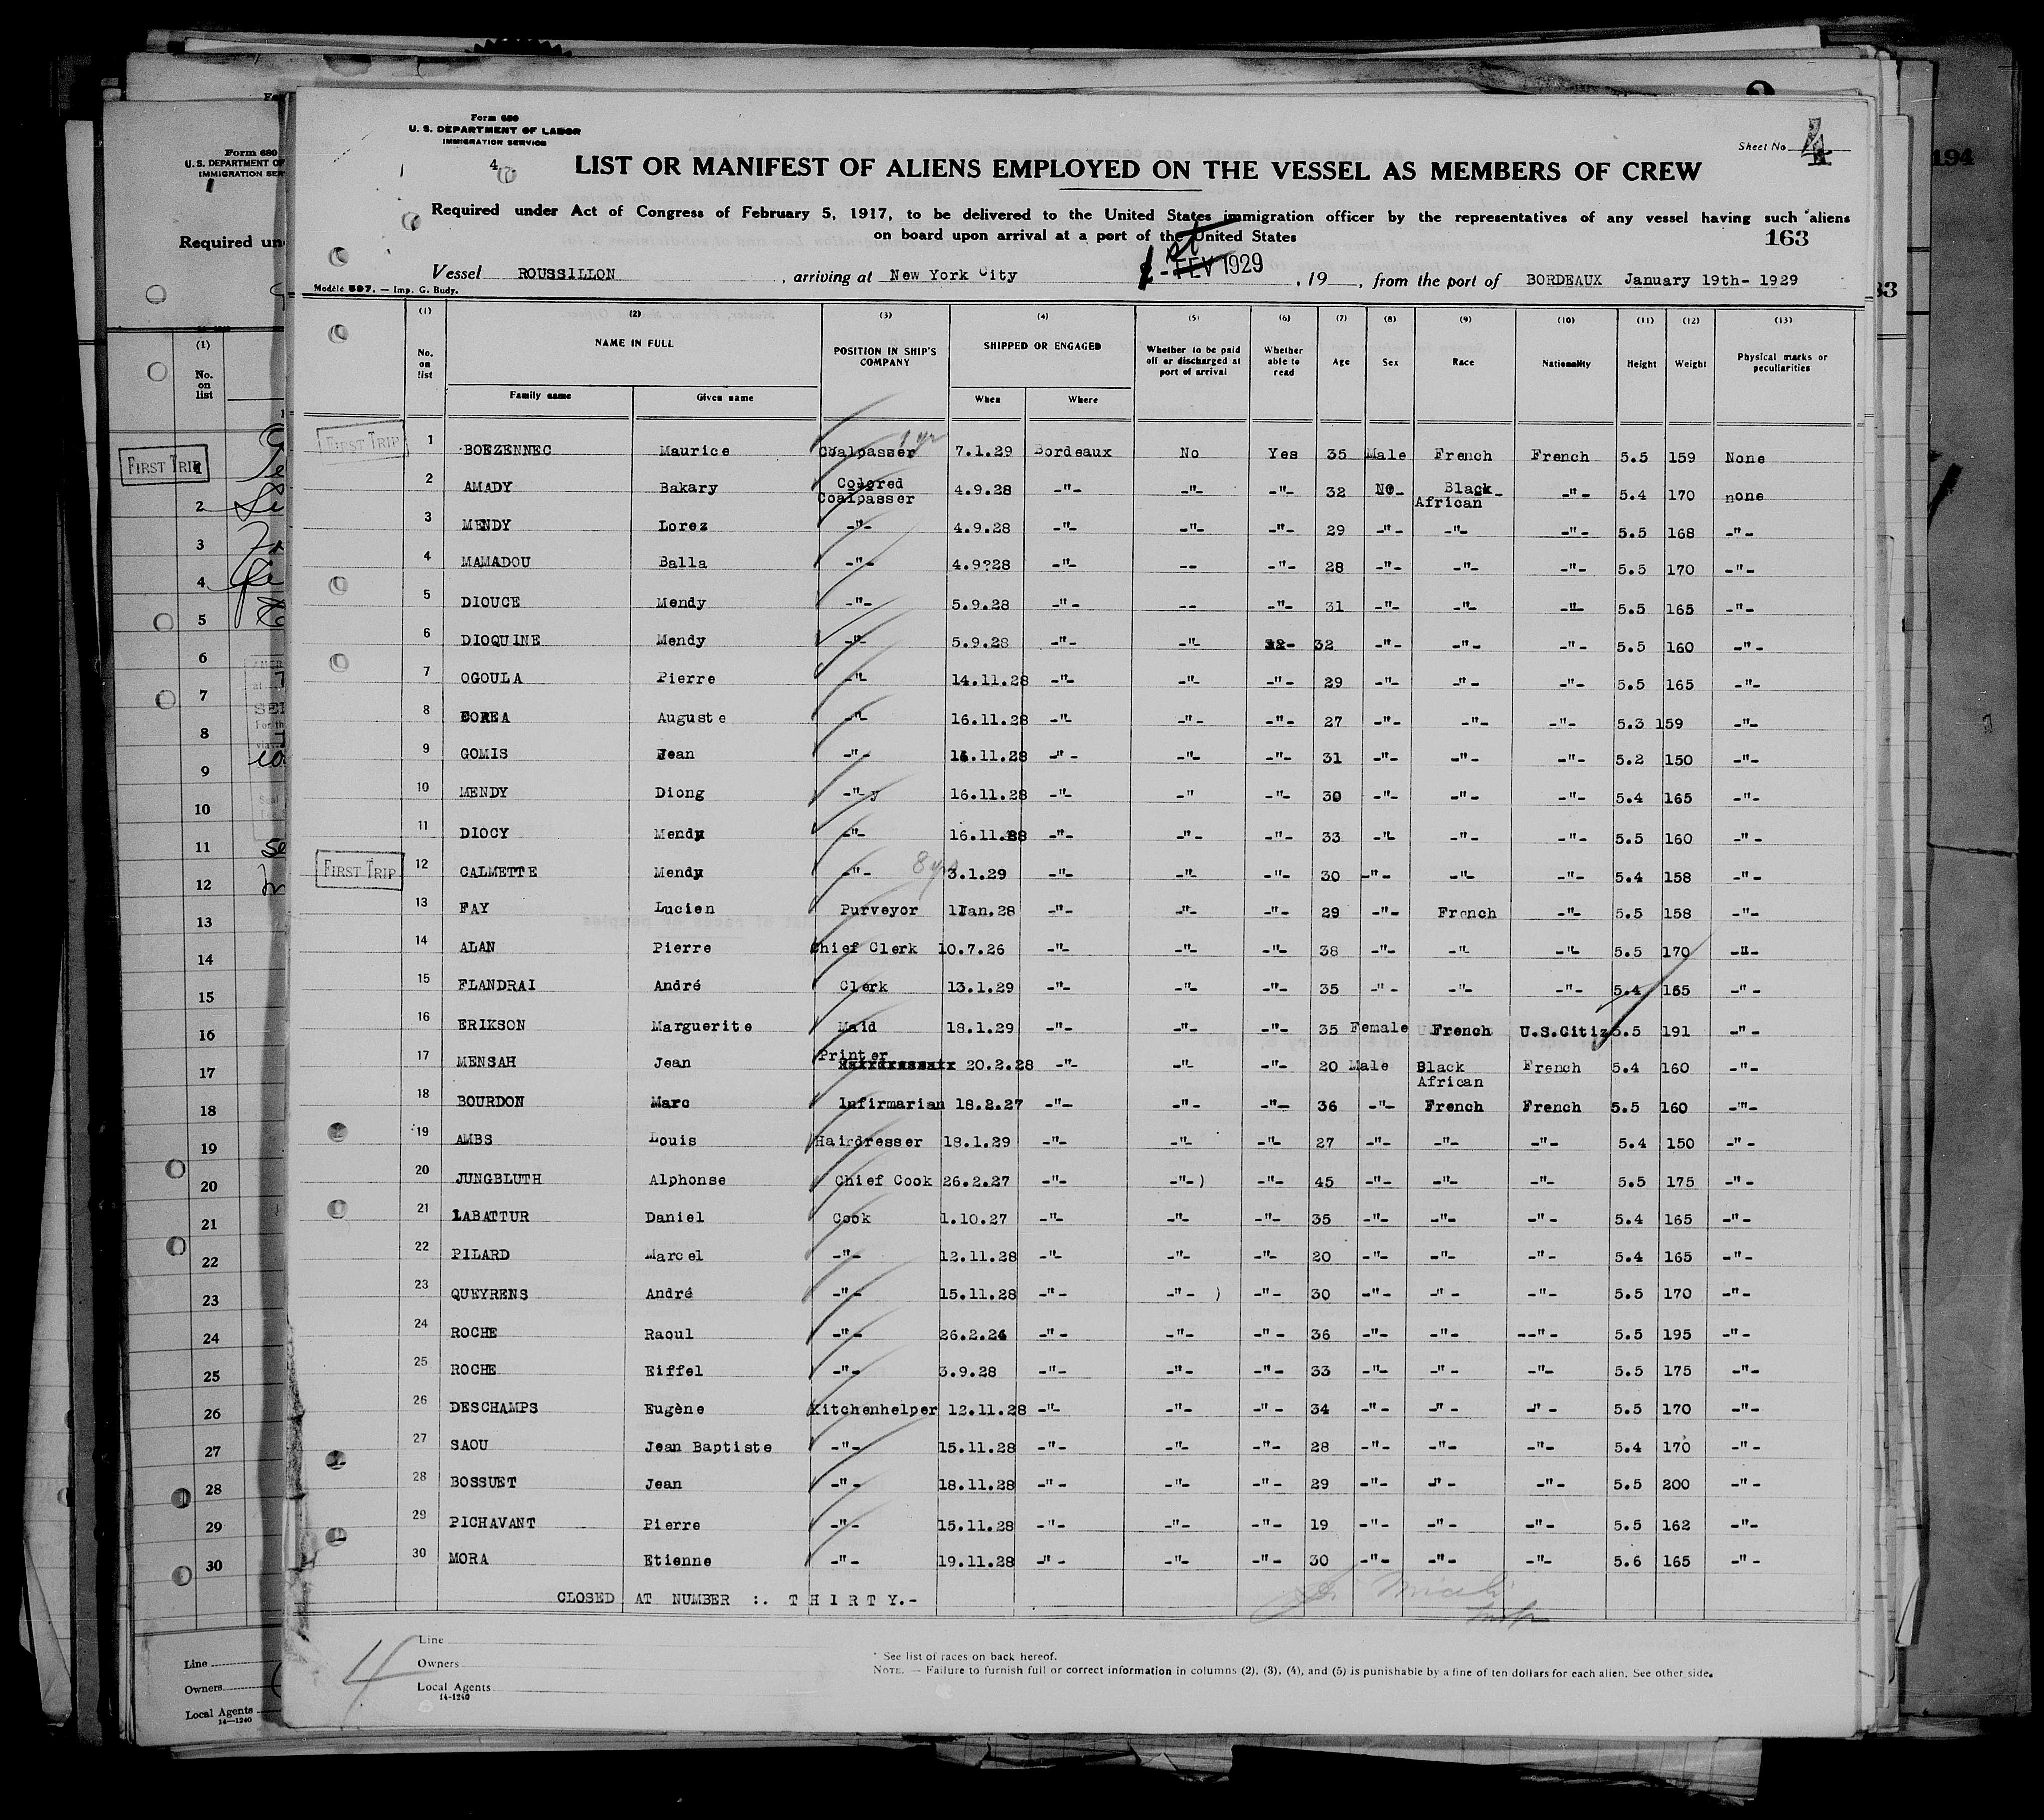 Form 680
U. S. DEPARTMENT OF LABOR
IMMIGRATION SERVICE
4
Sheet No. 4
LIST OR MANIFEST OF ALIENS EMPLOYED ON THE VESSEL AS MEMBERS OF CREW
Required under Act of Congress of February 5, 1917, to be delivered to the United States immigration officer by the representatives of any vessel having such aliens
on board upon arrival at a port of the United States
163
Vessel ROUSSILLON , arriving at New York City 1st FEV 1929 , 19 , from the port of BORDEAUX January 19th- 1929
Modèle 597. — Imp. G. Budy.
(1) (2) (3) (4) (5) (6) (7) (8) (9) (10) (11) (12) (13)
No. on list NAME IN FULL POSITION IN SHIP'S COMPANY SHIPPED OR ENGAGED Whether to be paid off or discharged at port of arrival Whether able to read Age Sex Race Nationality Height Weight Physical marks or peculiarities
Family name Given name When Where
FIRST TRIP 1 BOEZENNEC Maurice Coalpasser 1 yr 7.1.29 Bordeaux No Yes 35 Male French French 5.5 159 None
2 AMADY Bakary Colored Coalpasser 4.9.28 -"- -"- -"- 32 -"- Black African -"- 5.4 170 none
3 MENDY Lorez -"- 4.9.28 -"- -"- -"- 29 -"- -"- -"- 5.5 168 -"-
4 MAMADOU Balla -"- 4.9?28 -"- -- -"- 28 -"- -"- -"- 5.5 170 -"-
5 DIOUCE Mendy -"- 5.9.28 -"- -- -"- 31 -"- -"- -"- 5.5 165 -"-
6 DIOQUINE Mendy -"- 5.9.28 -"- -"- -"- 32 -"- -"- -"- 5.5 160 -"-
7 OGOULA Pierre -"- 14.11.28 -"- -"- -"- 29 -"- -"- -"- 5.5 165 -"-
8 COREA Auguste -"- 16.11.28 -"- -"- -"- 27 -"- -"- -"- 5.3 159 -"-
9 GOMIS Jean -"- 16.11.28 -"- -"- -"- 31 -"- -"- -"- 5.2 150 -"-
10 MENDY Diong -"- y 16.11.28 -"- -" -"- 30 -"- -"- -"- 5.4 165 -"-
11 DIOCY Mendy -"- 16.11.28 -"- -"- -"- 33 -"- -"- -"- 5.5 160 -"-
FIRST TRIP 12 CALMETTE Mendy -"- 8 yrs 3.1.29 -"- -"- -"- 30 -"- -"- -"- 5.4 158 -"-
13 FAY Lucien Purveyor 1Jan.28 -"- -"- -"- 29 -"- French -"- 5.5 158 -"-
14 ALAN Pierre Chief Clerk 10.7.26 -"- -"- -"- 38 -"- -"- -"- 5.5 170 -"-
15 FLANDRAI André Clerk 13.1.29 -"- -"- -"- 35 -"- -"- -"- 5.4 165 -"-
16 ERIKSON Marguerite Maid 18.1.29 -"- -"- -"- 35 Female French U.S.Citiz 5.5 191 -"-
17 MENSAH Jean Printer 20.2.28 -"- -"- -"- 20 Male Black African French 5.4 160 -"-
18 BOURDON Marc Infirmarian 18.2.27 -"- -"- -"- 36 -"- French French 5.5 160 -"-
19 AMBS Louis Hairdresser 18.1.29 -"- -"- -"- 27 -"- -"- -"- 5.4 150 -"-
20 JUNGBLUTH Alphonse Chief Cook 26.2.27 -"- -"-) -"- 45 -"- -"- -"- 5.5 175 -"-
21 LABATTUR Daniel Cook 1.10.27 -"- -"- -"- 35 -"- -"- -"- 5.4 165 -"-
22 PILARD Marcel -"- 12.11.28 -"- -"- -"- 20 -"- -"- -"- 5.4 165 -"-
23 QUEYRENS André -"- 15.11.28 -"- -"- ) -"- 30 -"- -"- -"- 5.5 170 -"-
24 ROCHE Raoul -"- 26.2.26 -"- -"- -"- 36 -"- -"- --"- 5.5 195 -"-
25 ROCHE Eiffel -"- 3.9.28 -"- -"- -"- 33 -"- -"- -"- 5.5 175 -"-
26 DESCHAMPS Eugène Kitchenhelper 12.11.28 -"- -"- -"- 34 -"- -"- -"- 5.5 170 -"-
27 SAOU Jean Baptiste -"- 15.11.28 -"- -"- -"- 28 -"- -"- -"- 5.4 170 -"-
28 BOSSUET Jean -"- 18.11.28 -"- -"- -"- 29 -"- -"- -"- 5.5 200 -"-
29 PICHAVANT Pierre -"- 15.11.28 -"- -"- -"- 19 -"- -"- -"- 5.5 162 -"-
30 MORA Etienne -"- 19.11.28 -"- -"- -"- 30 -"- -"- -"- 5.6 165 -"-
CLOSED AT NUMBER :. T H I R T Y.-
4
Line
Owners
Local Agents
14-1240
* See list of races on back hereof.
NOTE. — Failure to furnish full or correct information in columns (2), (3), (4), and (5) is punishable by a fine of ten dollars for each alien. See other side.
Form 680
U. S. DEPARTMENT OF
IMMIGRATION SER
Required un
(1)
No.
on
list
FIRST TRIP
1
2
3
4
5
6
7
8
9
10
11
12
13
14
15
16
17
18
19
20
21
22
23
24
25
26
27
28
29
30
Line
Owners
Local Agents
14—1240
194
33